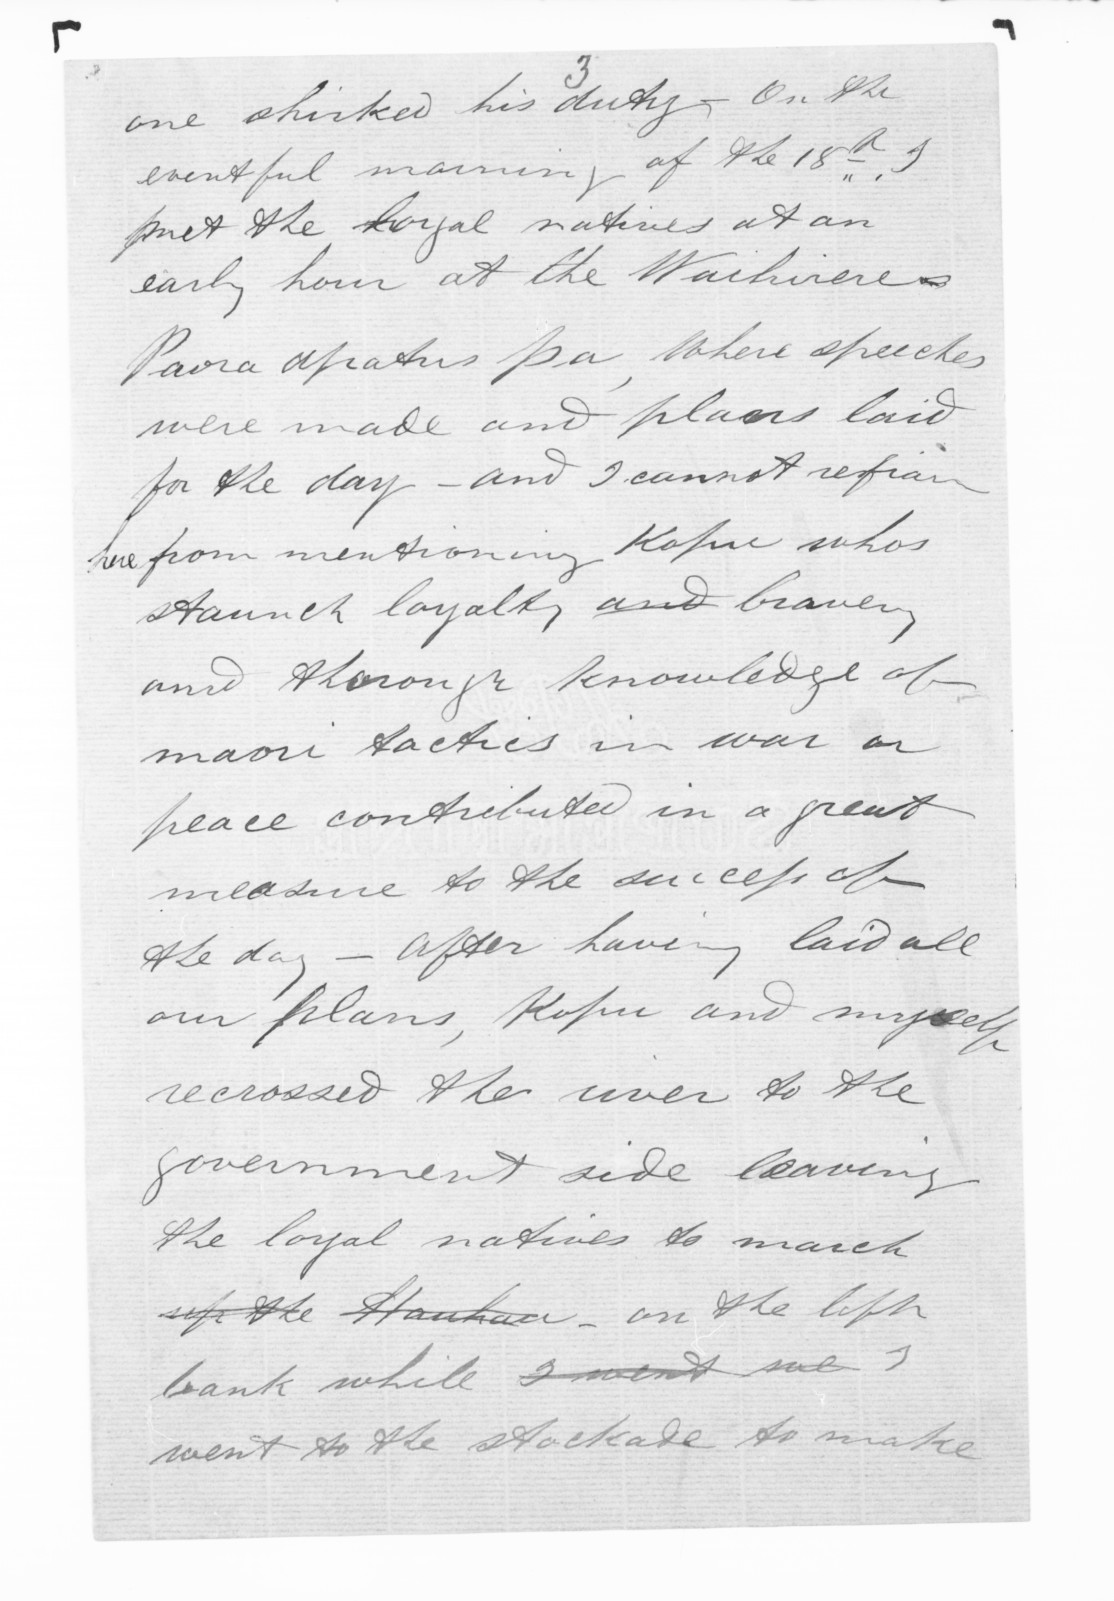 3
one shirked his duty - On the
eventful morning of the 18th I
met the loyal natives at an
early hour at the Waihirere
Paora Apatus Pa, where speeches
were made and plans laid
for the day - and I cannot refrain
here from mentioning Kopu whos
staunch loyalty and bravery
and thorough knowledge of
maori tactics in war or
peace contributed in a great
measure to the success of
the day - After having laid all
our plans, Kopu and myself
recrossed the river to the
government side leaving
the loyal natives to march
up the Hauhau - on the left
bank while I went we I
went to the stockade to make